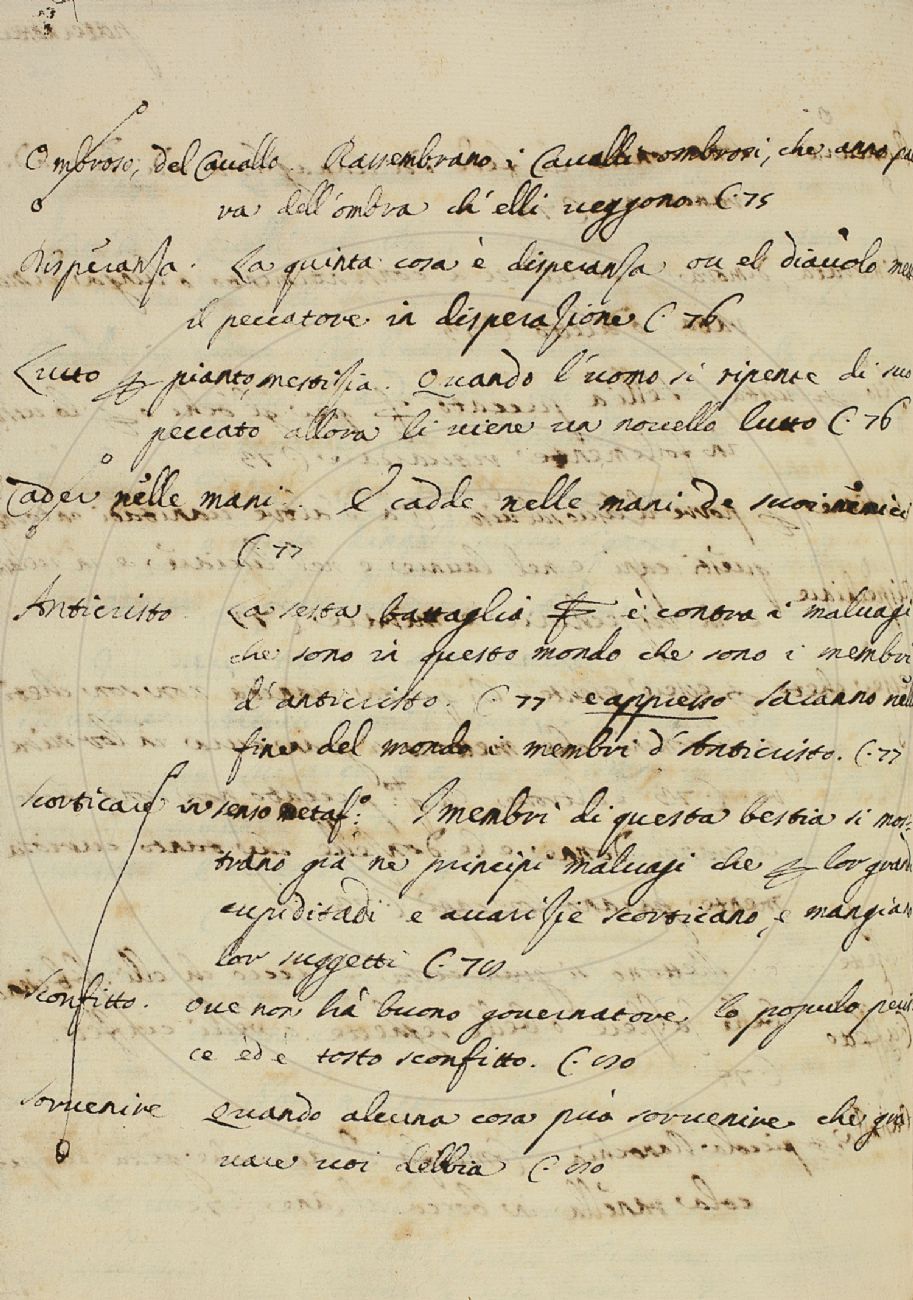 Ombroso, del Cavallo. Rassembrano i Cavalli ombrosi, che anno pau
ra dell'ombra ch'elli veggono C. 75
Disperanza. La quinta cosa è disperanza ov el diavolo met
il peccatore in disperazione C. 76
Lutto pianto, mestizia. Quando l'uomo si ripente di suo
peccato allora li viene un novello lutto C. 76
Cader nelle mani. E cadde nelle mani de suoi nemici
C. 77
Anticristo La sesta battaglia è contra i malvagi
che sono in questo mondo che sono i membri
d'anticristo. C. 77 e appresso saranno nella
fine del mondo i membri d'Anticristo. C. 77
Scorticare in senso metaf.o: I membri di questa bestia si mos-
trano già ne principi malvagi che lor grandi
cupiditadi e avarizie scorticano, e mangiano
lor suggetti C.
Sconfitto. Ove non hà buono governatore lo populo peris
ce ed è tosto sconfitto. C.
Sorvenire Quando alcuna cosa può sorvenire che gra
vare voi debbia C.